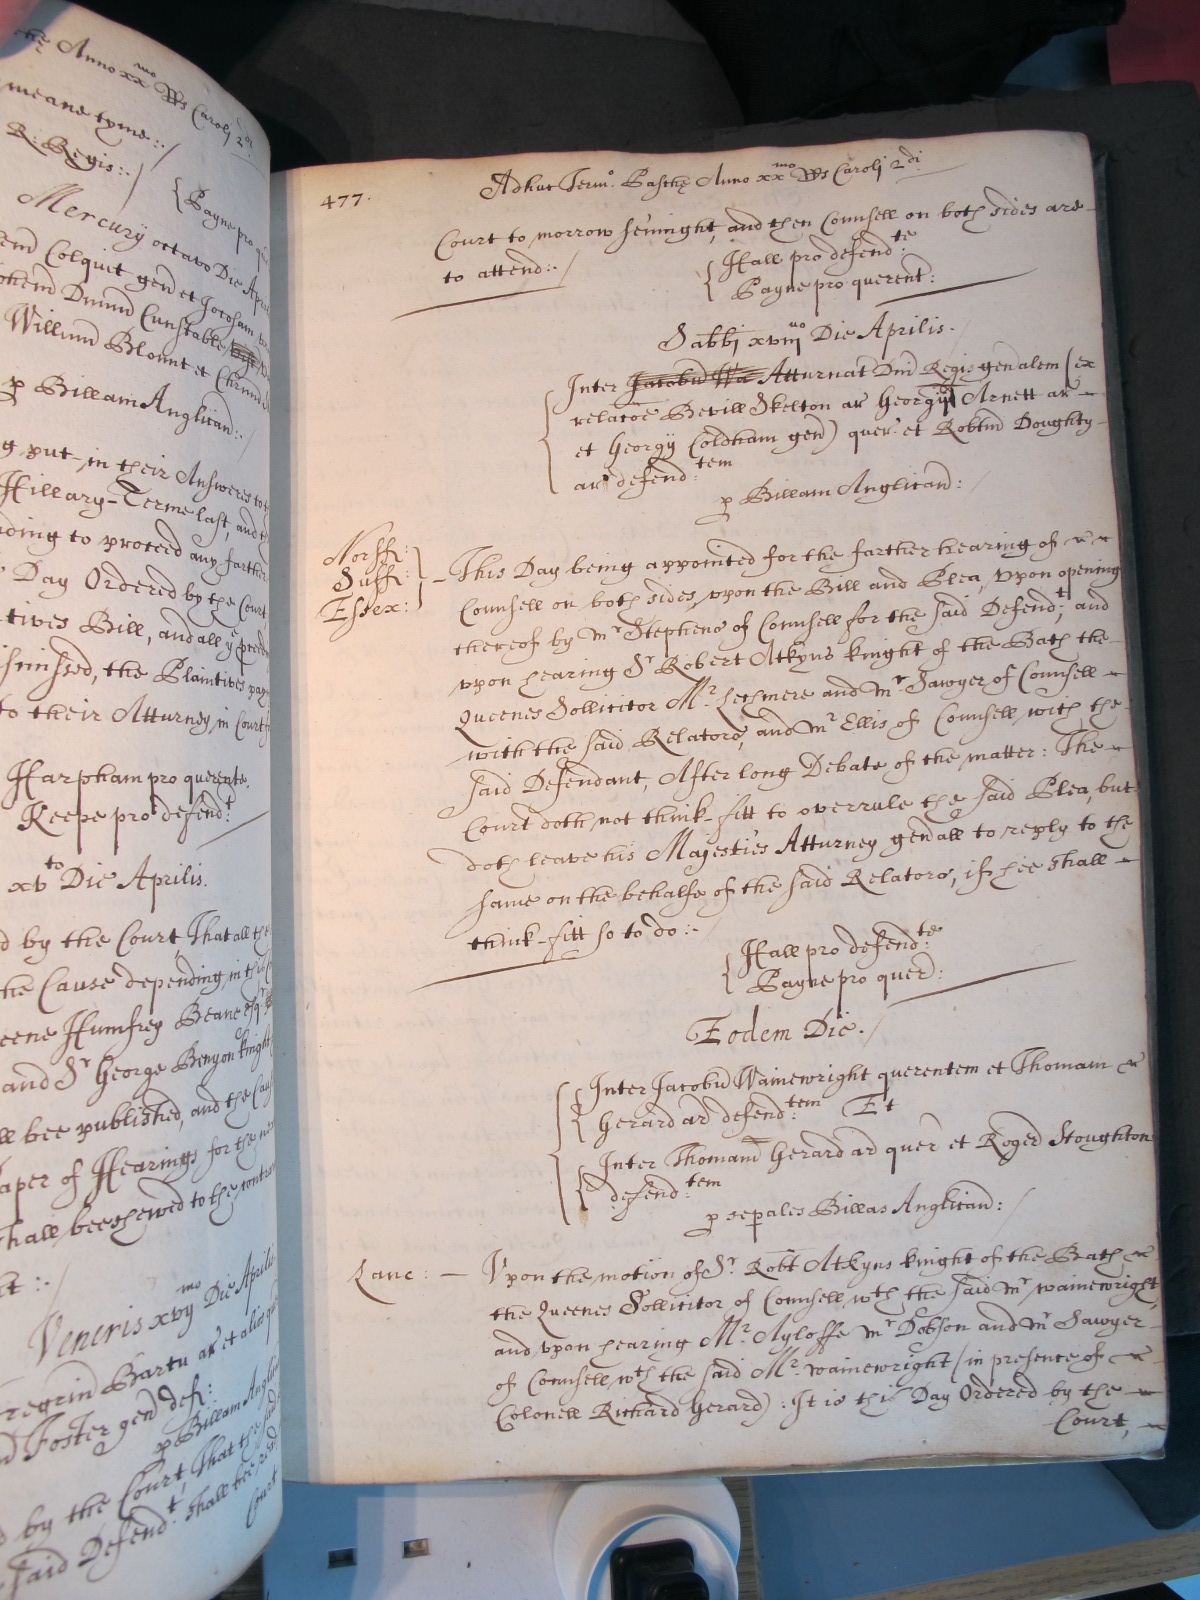 Anno xx mo Rs Caroli 2 di
meane tyme :
R: Regis :
Payne pro
Mercurij octavo Die
Colquit gen et
Dmum Cunstable
Willim Blount et
p Billam Anglican :
put in their Answeres
Hillary Terme last, and
to proceed any farther
Day Ordered by the Court
Bill, and all
the Plaintives
to their Atturney in Court
Harpham pro querente.
Keepe pro defend: t
xv to Die Aprilis.
by the Court, That all the
Cause depending in
Humfrey Beane esq r
and Sr George Benyon knight
bee published, and the
of Hearings for the
shall bee shewed to the
Veneris xvij mo Die Aprilis
Bartu ar et
Foster gen def :
p Billam
by the Court, That the
said Defend t shall bee
Court
477.
Adhuc Term o. Pasche Anno xx mo Rs Caroli 2 di.
Court to morrow sennight, and then Counsell on both sides are
to attend :.
Hall pro defend: te
Payne pro querent :
Sabbi xviij uo Die Aprilis.
Inter Jacobu Wa Atturnat Dni Regis genalem (ex
relacoe Bevill Skelton ar Georgij Arnett ar
et Georgij Coldham gen) quer et Robtm Doughty
ar defend: tem
p Billam Anglican :
Norff :
Suff :
Essex :
This Day being appointed for the farther hearing of
Counsell on both sides, upon the Bill and Plea, upon opening
thereof by Mr Stephens of Counsell for the said Defend: t, and
upon hearing Sr Robert Atkyns knight of the Bath the
Queenes Sollicitor Mr. Lechmere and Mr Sawyer of Counsell
with the said Relators, and Mr Ellis of Counsell with the
said Defendant, After long Debate of the matter : The
Court doth not think fitt to overrule the said Plea, but
doth leave his Majesties Atturney genall to reply to the
same on the behalfe of the said Relators, if hee shall
think fitt so to do :.
Hall pro defend: te
Payne pro quer :
Eodem Die.
Inter Jacobu Wainewright querentem et Thomam
Gerard ar defend: tem Et
Inter Thomam Gerard ar quer et Roger Stoughton
defend: tem
p sepales Billas Anglican :
Lanc :
Upon the motion of Sr. Robt Atkyns knight of the Bath
the Queenes Sollicitor of Counsell wth the said Mr wainewright,
and upon hearing Mr. Ayloffe Mr Dobson and Mr Sawyer
of Counsell wth the said Mr. wainewright (in presence of
Colonell Richard Gerard) : It is this Day Ordered by the
Court,